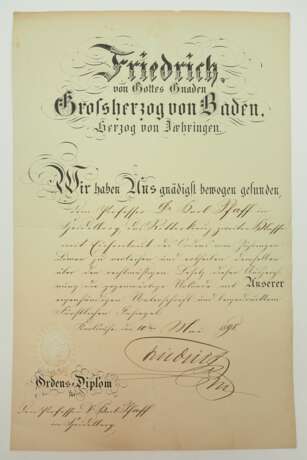 Friedrich,
von Gottes Gnaden
Grossherzog von Baden,
Herzog von Zæhringen.
Wir haben Uns gnädigst bewogen gefunden,
dem Professor Dr. Karl Pfaff in
Heidelberg das Ritterkreuz zweiter Klasse
mit Eichenlaub des Ordens vom Zähringer
Löwen zu verleihen und ertheilen demselben
über den rechtmäßigen Besitz dieser Auszeich
nung die gegenwärtige Urkunde mit Unserer
eigenhändigen Unterschrift und beigedrucktem
Fürstlichen Insiegel.
Karlsruhe, den 10ten Mai 1898
Friedrich
Ordens-Diplom
für
den Professor Dr. Karl Pfaff
in Heidelberg